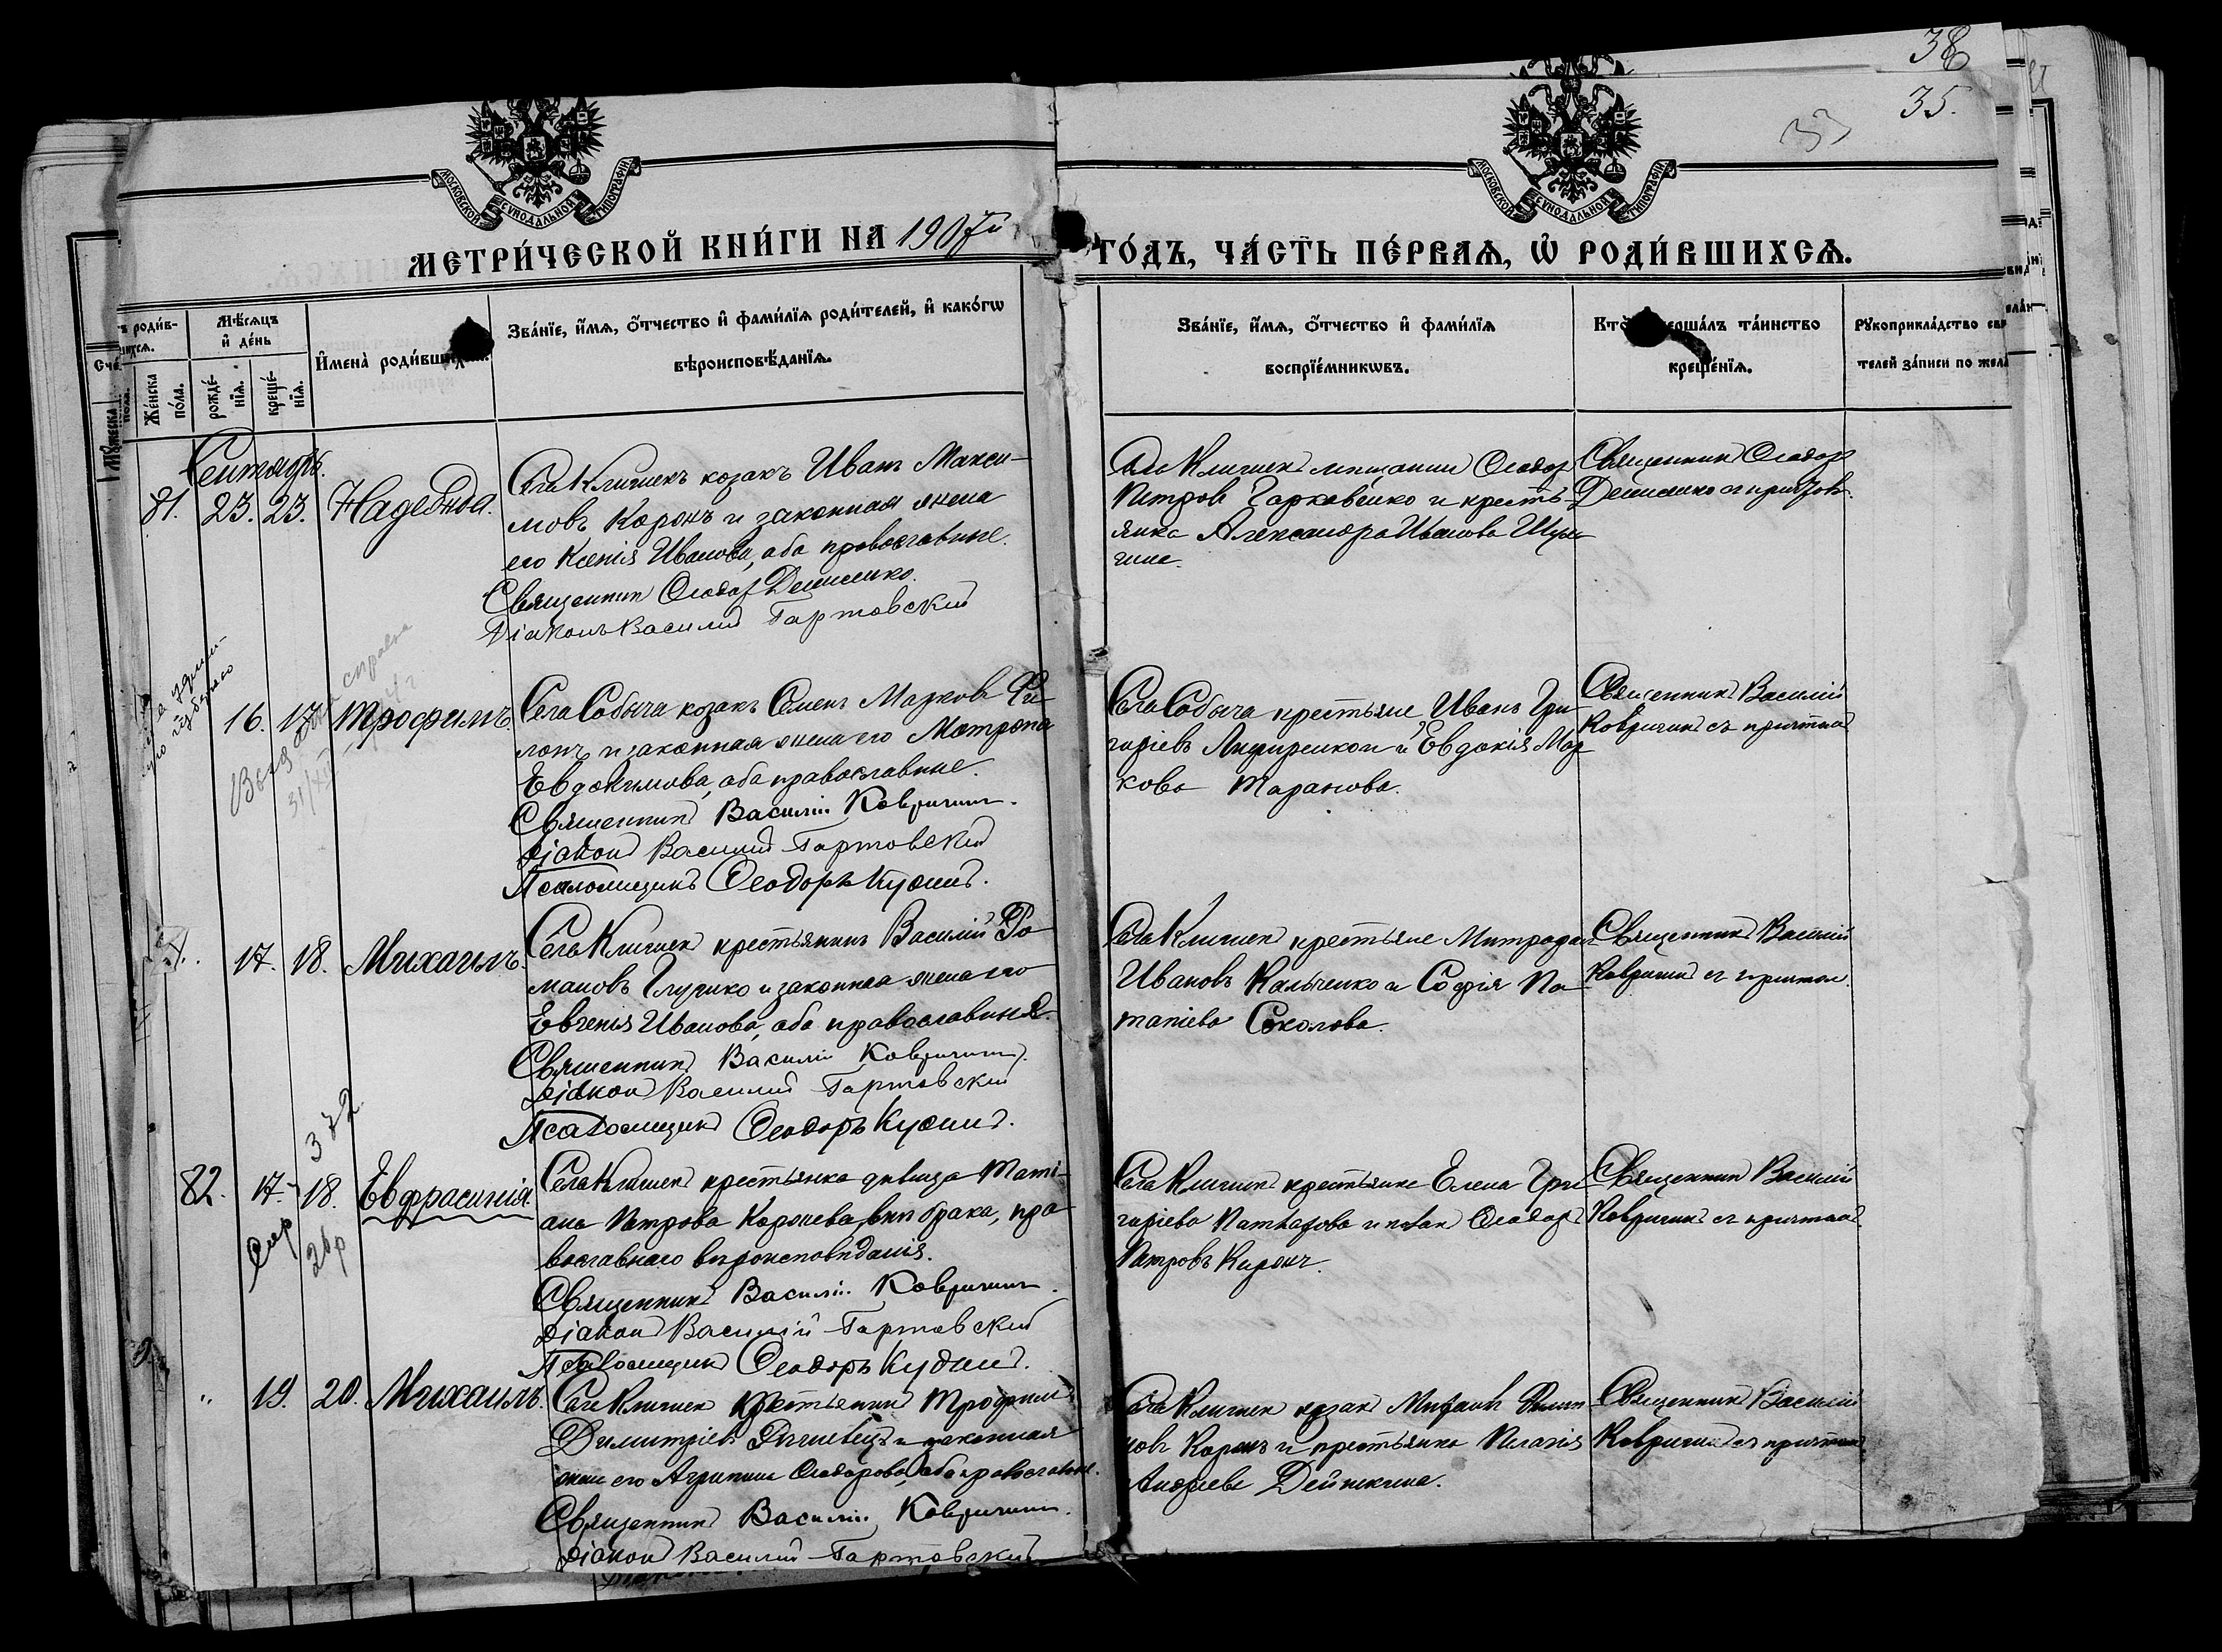 38
35.
33
МОСКОВСКОЙ СѴНОДАЛЬНОЙ ТИПОГРАФІИ
МОСКОВСКОЙ СѴНОДАЛЬНОЙ ТИПОГРАФІИ
МЕТРИ́ЧЕСКОЙ КНИ́ГИ НА 1907й
ГО́ДЪ, ЧА́СТЬ ПЕ́РВАѦ, Ѡ҆ РОДИ́ВШИХСѦ.
Мѣ́сѧцъ и҆ де́нь
Же́нска по́ла.
рожде́нїѧ.
креще́нїѧ.
И҆мена̀ роди́вшихсѧ.
Зва́нїе, и҆́мѧ, ѻ҆́тчество и҆ фами́лїѧ роди́телей, и҆ како́гѡ
вѣроисповѣ́данїѧ.
Зва́нїе, и҆́мѧ, ѻ҆́тчество и҆ фами́лїѧ
воспрїе́мникѡвъ.
Кто̀ соверша́лъ та́инство
креще́нїѧ.
Рꙋкоприкла́дство
телей за́писи по жела
Сентябрь.
81. 23. 23. Надежда.
Села Клишекъ козакъ Иванъ Макси-
мовъ Коронъ и законная жена
его Ксенія Иванова, оба православные.
Священникъ Ѳеодоръ Денисенко.
Діаконъ Василій Гартовскій
Села Клишекъ мещанинъ Ѳеодоръ
Петровъ Гарковенко и кресть-
янка Александра Иванова
Священникъ Ѳеодоръ
Денисенко съ причтомъ.
16. 17. Трофимъ.
Села Собыча козакъ Семенъ Марковъ Фи-
лонъ и законная жена его Матрона
Евдокимова, оба православные.
Священникъ Василій Ковригинъ.
Діаконъ Василій Гартовскій
Псаломщикъ Ѳеодоръ Кудинъ.
Села Собыча крестьяне Иванъ Гри-
горіевъ и Евдокія Мар-
кова Таранова.
Священникъ Василій
Ковригинъ съ причтомъ
17. 18. Михаилъ.
Села Клишекъ крестьянинъ Василій Ро-
мановъ и законная жена его
Евгенія Иванова, оба православные.
Священникъ Василій Ковригинъ.
Діаконъ Василій Гартовскій
Псаломщикъ Ѳеодоръ Кудинъ.
Села Клишекъ крестьяне Митрофанъ
Ивановъ Кальченко и Софія По-
тапіева Соколова.
Священникъ Василій
Ковригинъ съ причтом.
372
82. 17. 18. Евфросинія.
Села Клишекъ крестьянка девица Таті-
ана Петрова Коронева, внѣ брака, пра-
вославнаго вѣроисповѣданія.
Священникъ Василій Ковригинъ.
Діаконъ Василій Гартовскій
Псаломщикъ Ѳеодоръ Кудинъ.
Села Клишекъ крестьянка Елена Гри-
горіева и козакъ Ѳеодоръ
Петровъ Коронъ.
Священникъ Василій
Ковригинъ съ причтомъ.
" 19. 20. Михаилъ.
Села Клишекъ крестьянинъ Трофимъ
Димитріевъ и законная
жена его Агрипина Ѳеодорова, оба православные.
Священникъ Василій Ковригинъ.
Діаконъ Василій Гартовскій
Села Клишекъ козакъ Михаилъ
Коронъ и крестьянка Пелагія
Андреева Дейнекина.
Священникъ Василій
Ковригинъ съ причтомъ